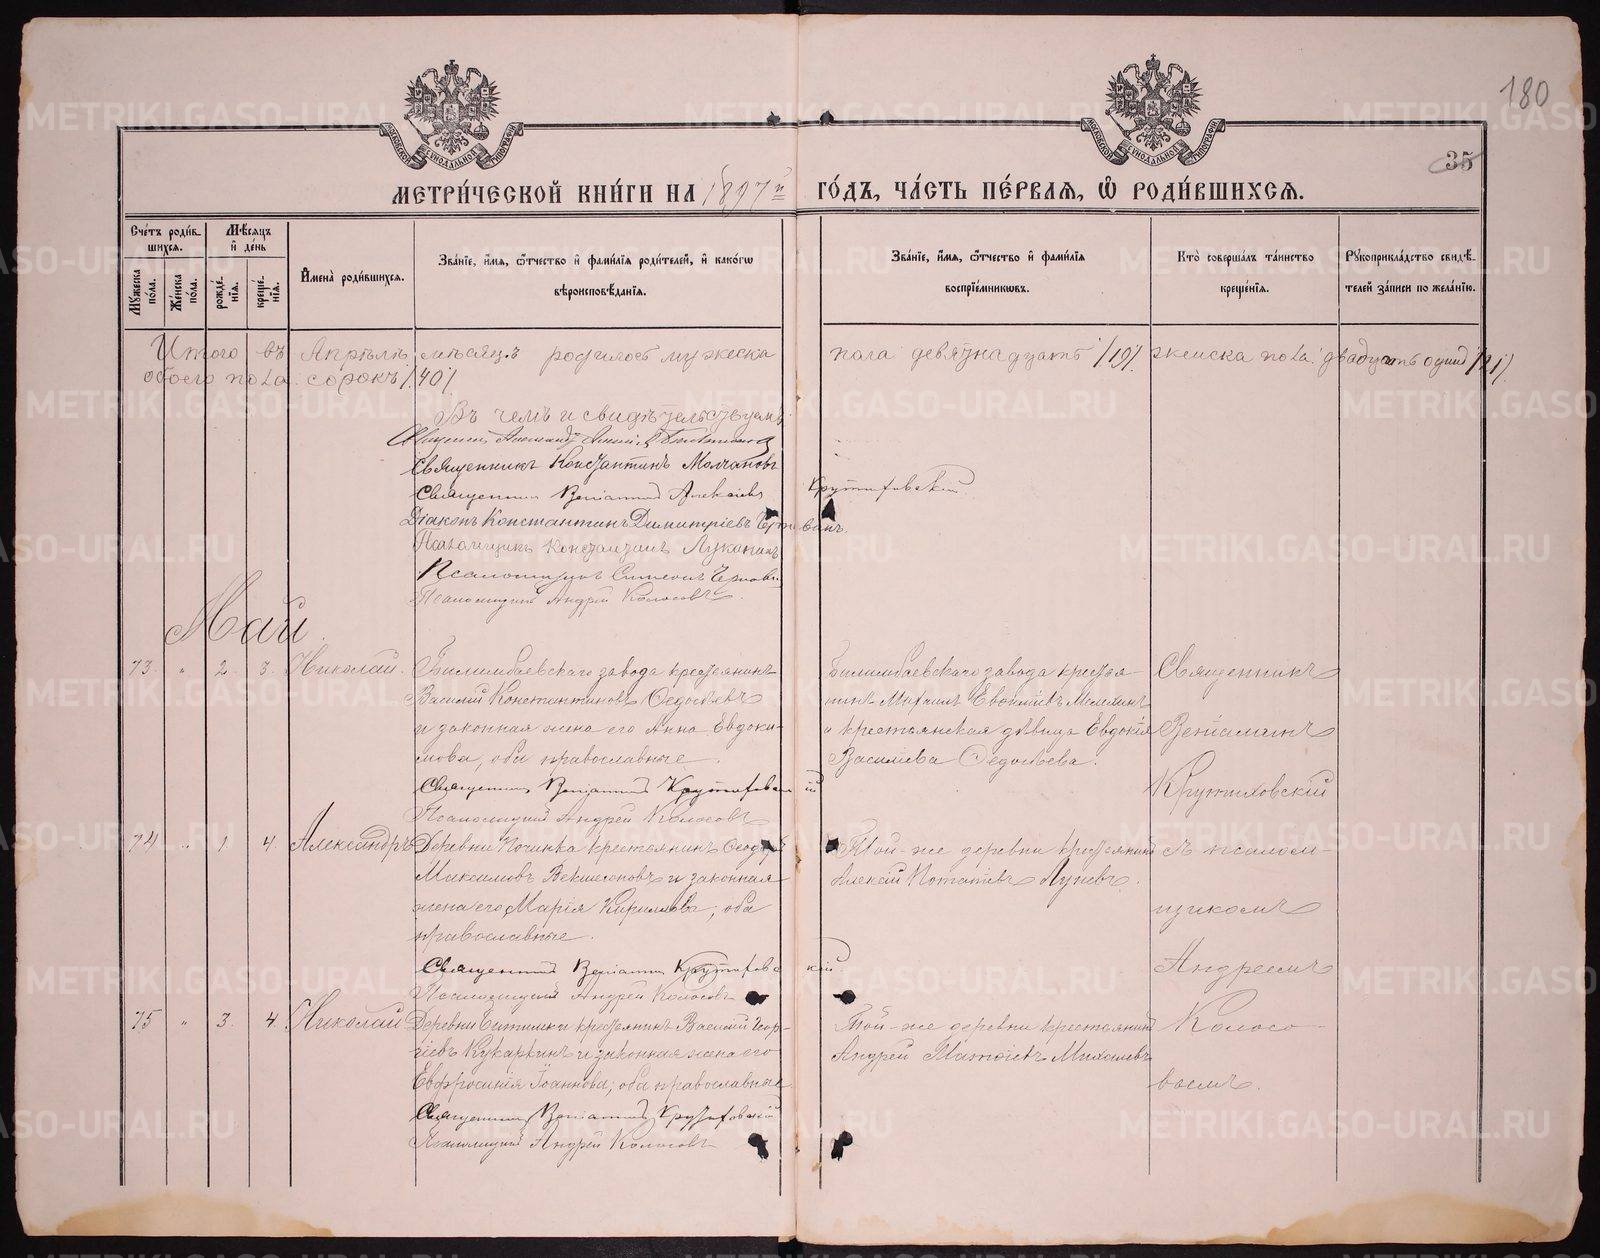 180
35
МОСКОВСКОЙ СѴНОДАЛЬНОЙ ТИПОГРАФІИ
МОСКОВСКОЙ СѴНОДАЛЬНОЙ ТИПОГРАФІИ
МЕТРИ́ЧЕСКОЙ КНИ́ГИ НА 1897й ГО́ДЪ, ЧА́СТЬ ПЕ́РВАЯ, Ѡ РОДИ́ВШИХСЯ.
Сче́тъ роди́вшихся.
Му́жеска по́ла.
Же́нска по́ла.
Мѣ́сяцъ и де́нь
рожде́нія.
креще́нія.
Имена̀ роди́вшихся.
Зва́ніе, и́мя, ѻ́тчество и фами́лія роди́телей, и како́гѡ вѣроисповѣ́данія.
Зва́ніе, и́мя, ѻ́тчество и фами́лія воспріе́мниковъ.
Кто̀ соверша́лъ та́инство креще́нія.
Рꙋкоприкла́дство свидѣ́телей за́писи по жела́нію.
Итого въ Апрѣлѣ мѣсяцѣ родилось мужеска пола девятнадцать /19/ женска пола двадцать одинъ /21/
обоего пола сорокъ /40/.
Въ чемъ и свидѣтельствуемъ:
Священникъ Константинъ Молчановъ
Священникъ Веніаминъ Алексіевъ Крутиховскій.
Діаконъ Константинъ Димитріевъ
Псаломщикъ Константинъ Луканинъ
Псаломщикъ
Псаломщикъ Андрей Колосовъ.
Май.
73. " 2. 3. Николай. Билимбаевскаго завода крестьянинъ
Василій Константиновъ Ѳедосѣевъ
и законная жена его Анна Евдоки-
мова, оба православные.
Священникъ Веніаминъ Крутиховскій
Псаломщикъ Андрей Колосовъ
Билимбаевскаго завода крестья-
нинъ Михаилъ
и крестьянская дѣвица Евдокія
Василіева Ѳедосѣева.
Священникъ
Веніаминъ
Крутиховскій
74. " 1. 4. Александръ Деревни Починка крестьянинъ Ѳеодоръ
Максимовъ и законная
жена его Марія Кириллова, оба
православные.
Священникъ Веніаминъ Крутиховскій
Псаломщикъ Андрей Колосовъ
Той-же деревни крестьянинъ
Алексій Потапіевъ
съ псалом-
щикомъ
Андреемъ
75 " 3. 4. Николай Деревни Битимки крестьянинъ Василій Геор-
гіевъ Кукаркинъ и законная жена его
Евфросинія Іоаннова, оба православные
Священникъ Веніаминъ Крутиховскій
Псаломщикъ Андрей Колосовъ
Той-же деревни крестьянинъ
Андрей
Колосо-
вымъ.
METRIKI.GASO-URAL.RU